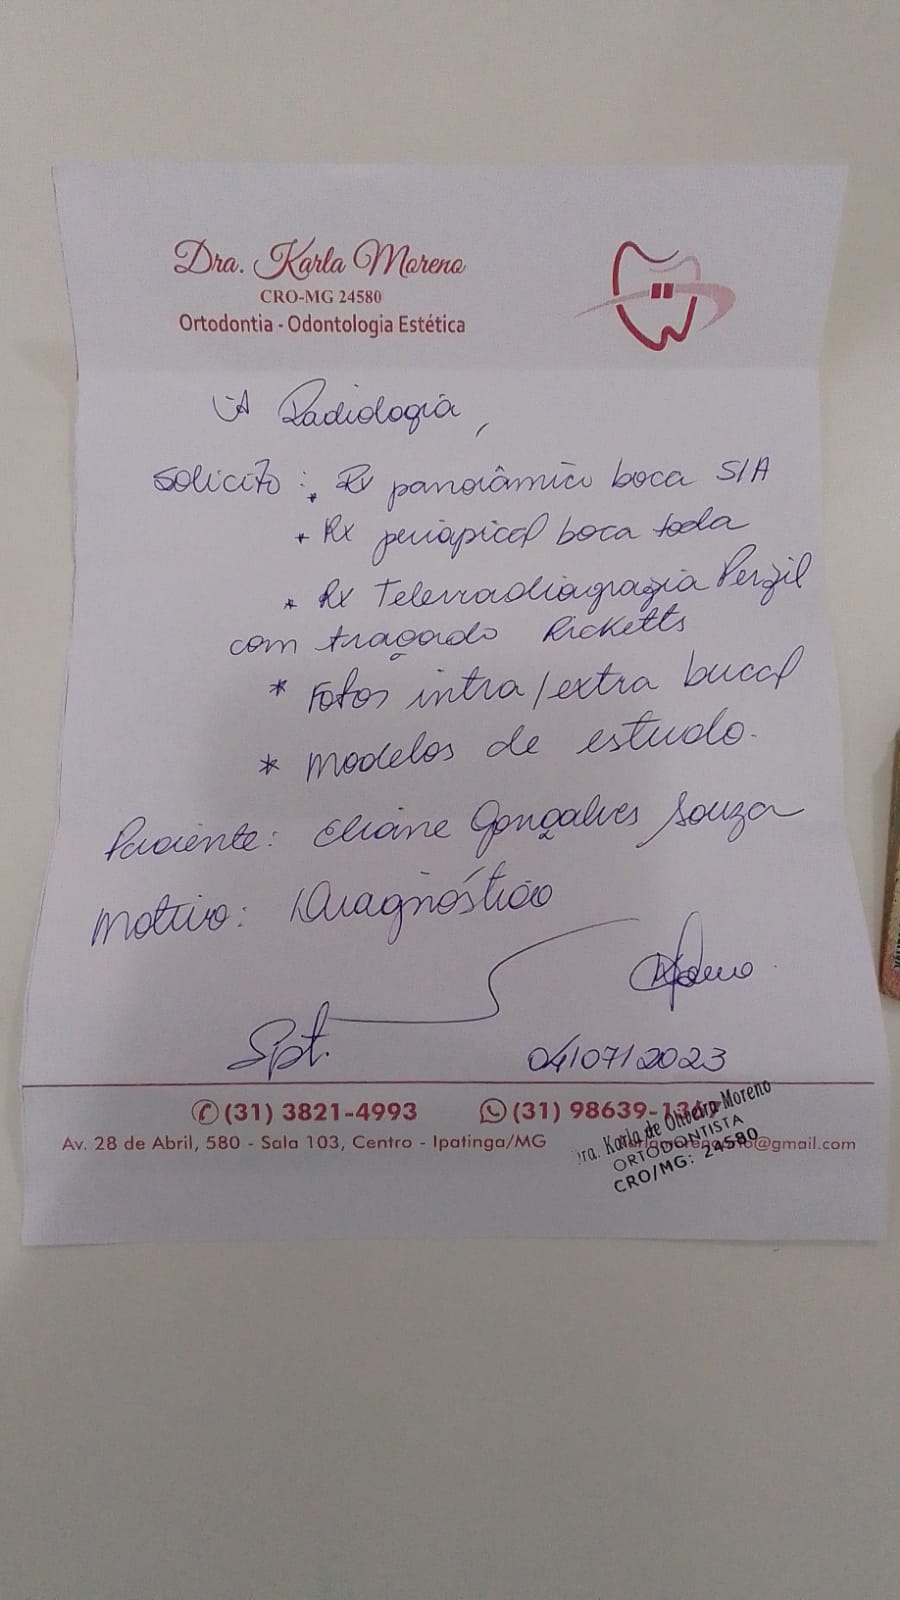 Dra. Karla Moreno
CRO-MG 24580
Ortodontia - Odontologia Estética
À Radiologia,
Solicito: * Rx panorâmico boca S/A
* Rx periapical boca toda
* Rx Telerradiografia Perfil
com traçado Ricketts
* Fotos intra/extra bucal
* Modelos de estudo.
Paciente: Eliane Gonçalves Souza
Motivo: Diagnóstico
Ipt.
04/07/2023
(31) 3821-4993 (31) 98639-
Av. 28 de Abril, 580 - Sala 103, Centro - Ipatinga/MG @gmail.com
Dra. Karla de Oliveira Moreno
ORTODONTISTA
CRO/MG: 24580